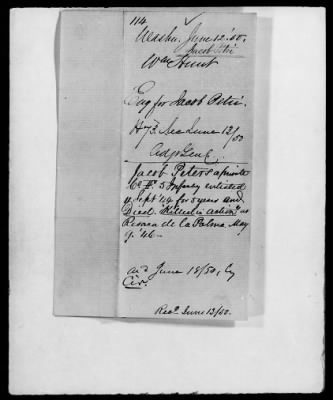 114
Washn. June 12. 50.
Jacob Petri
Wm Hunt
Enq for Jacob Petri
H 73. See June 12/50
Adj Genl
Jacob Peters a private
Co E. 5 Infantry enlisted
4 Sept '44 for 5 years and
Died. "Killed in action" at
Resaca de la Palma May
9. '46-
and June 18/50, by
Cir.
Recd June 13/50.